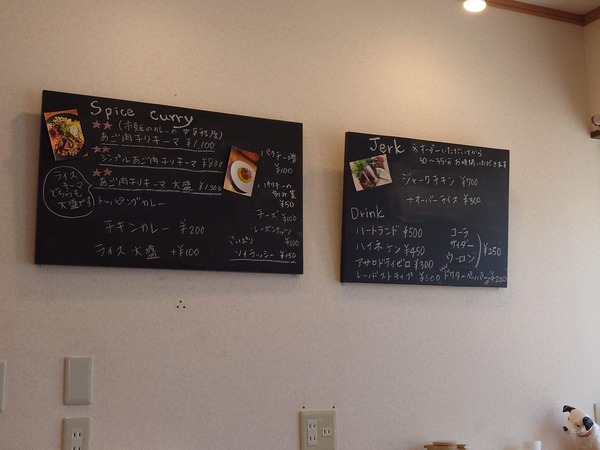 Spice Curry
★★ (市販のカレーの中辛程度)
あご肉チリキーマ ¥1,100
★★
シンプルあご肉チリキーマ ¥800
★★
あご肉チリキーマ 大盛 ¥1,300
ライス
キーマ
どちらも
大盛です
トッピングカレー
チキンカレー ¥200
ライス大盛 +¥100
パクチー
¥100
パクチーの
¥50
チーズ ¥100
レーズンナッツ
¥100
さっぱり
ソイラッシー ¥150
Jerk ※オーダーいただいてから
30〜35分お時間いただきます
ジャークチキン ¥700
+オーバーライス ¥300
Drink
ハートランド ¥500
ハイネケン ¥450
アサヒドライゼロ ¥300
レッドストライプ ¥600
コーラ
サイダー
ウーロン
¥250
ドクターペッパー ¥200